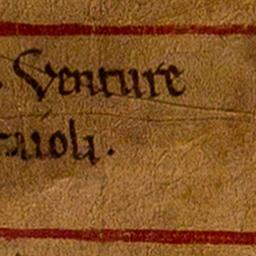 Venture
raioli.